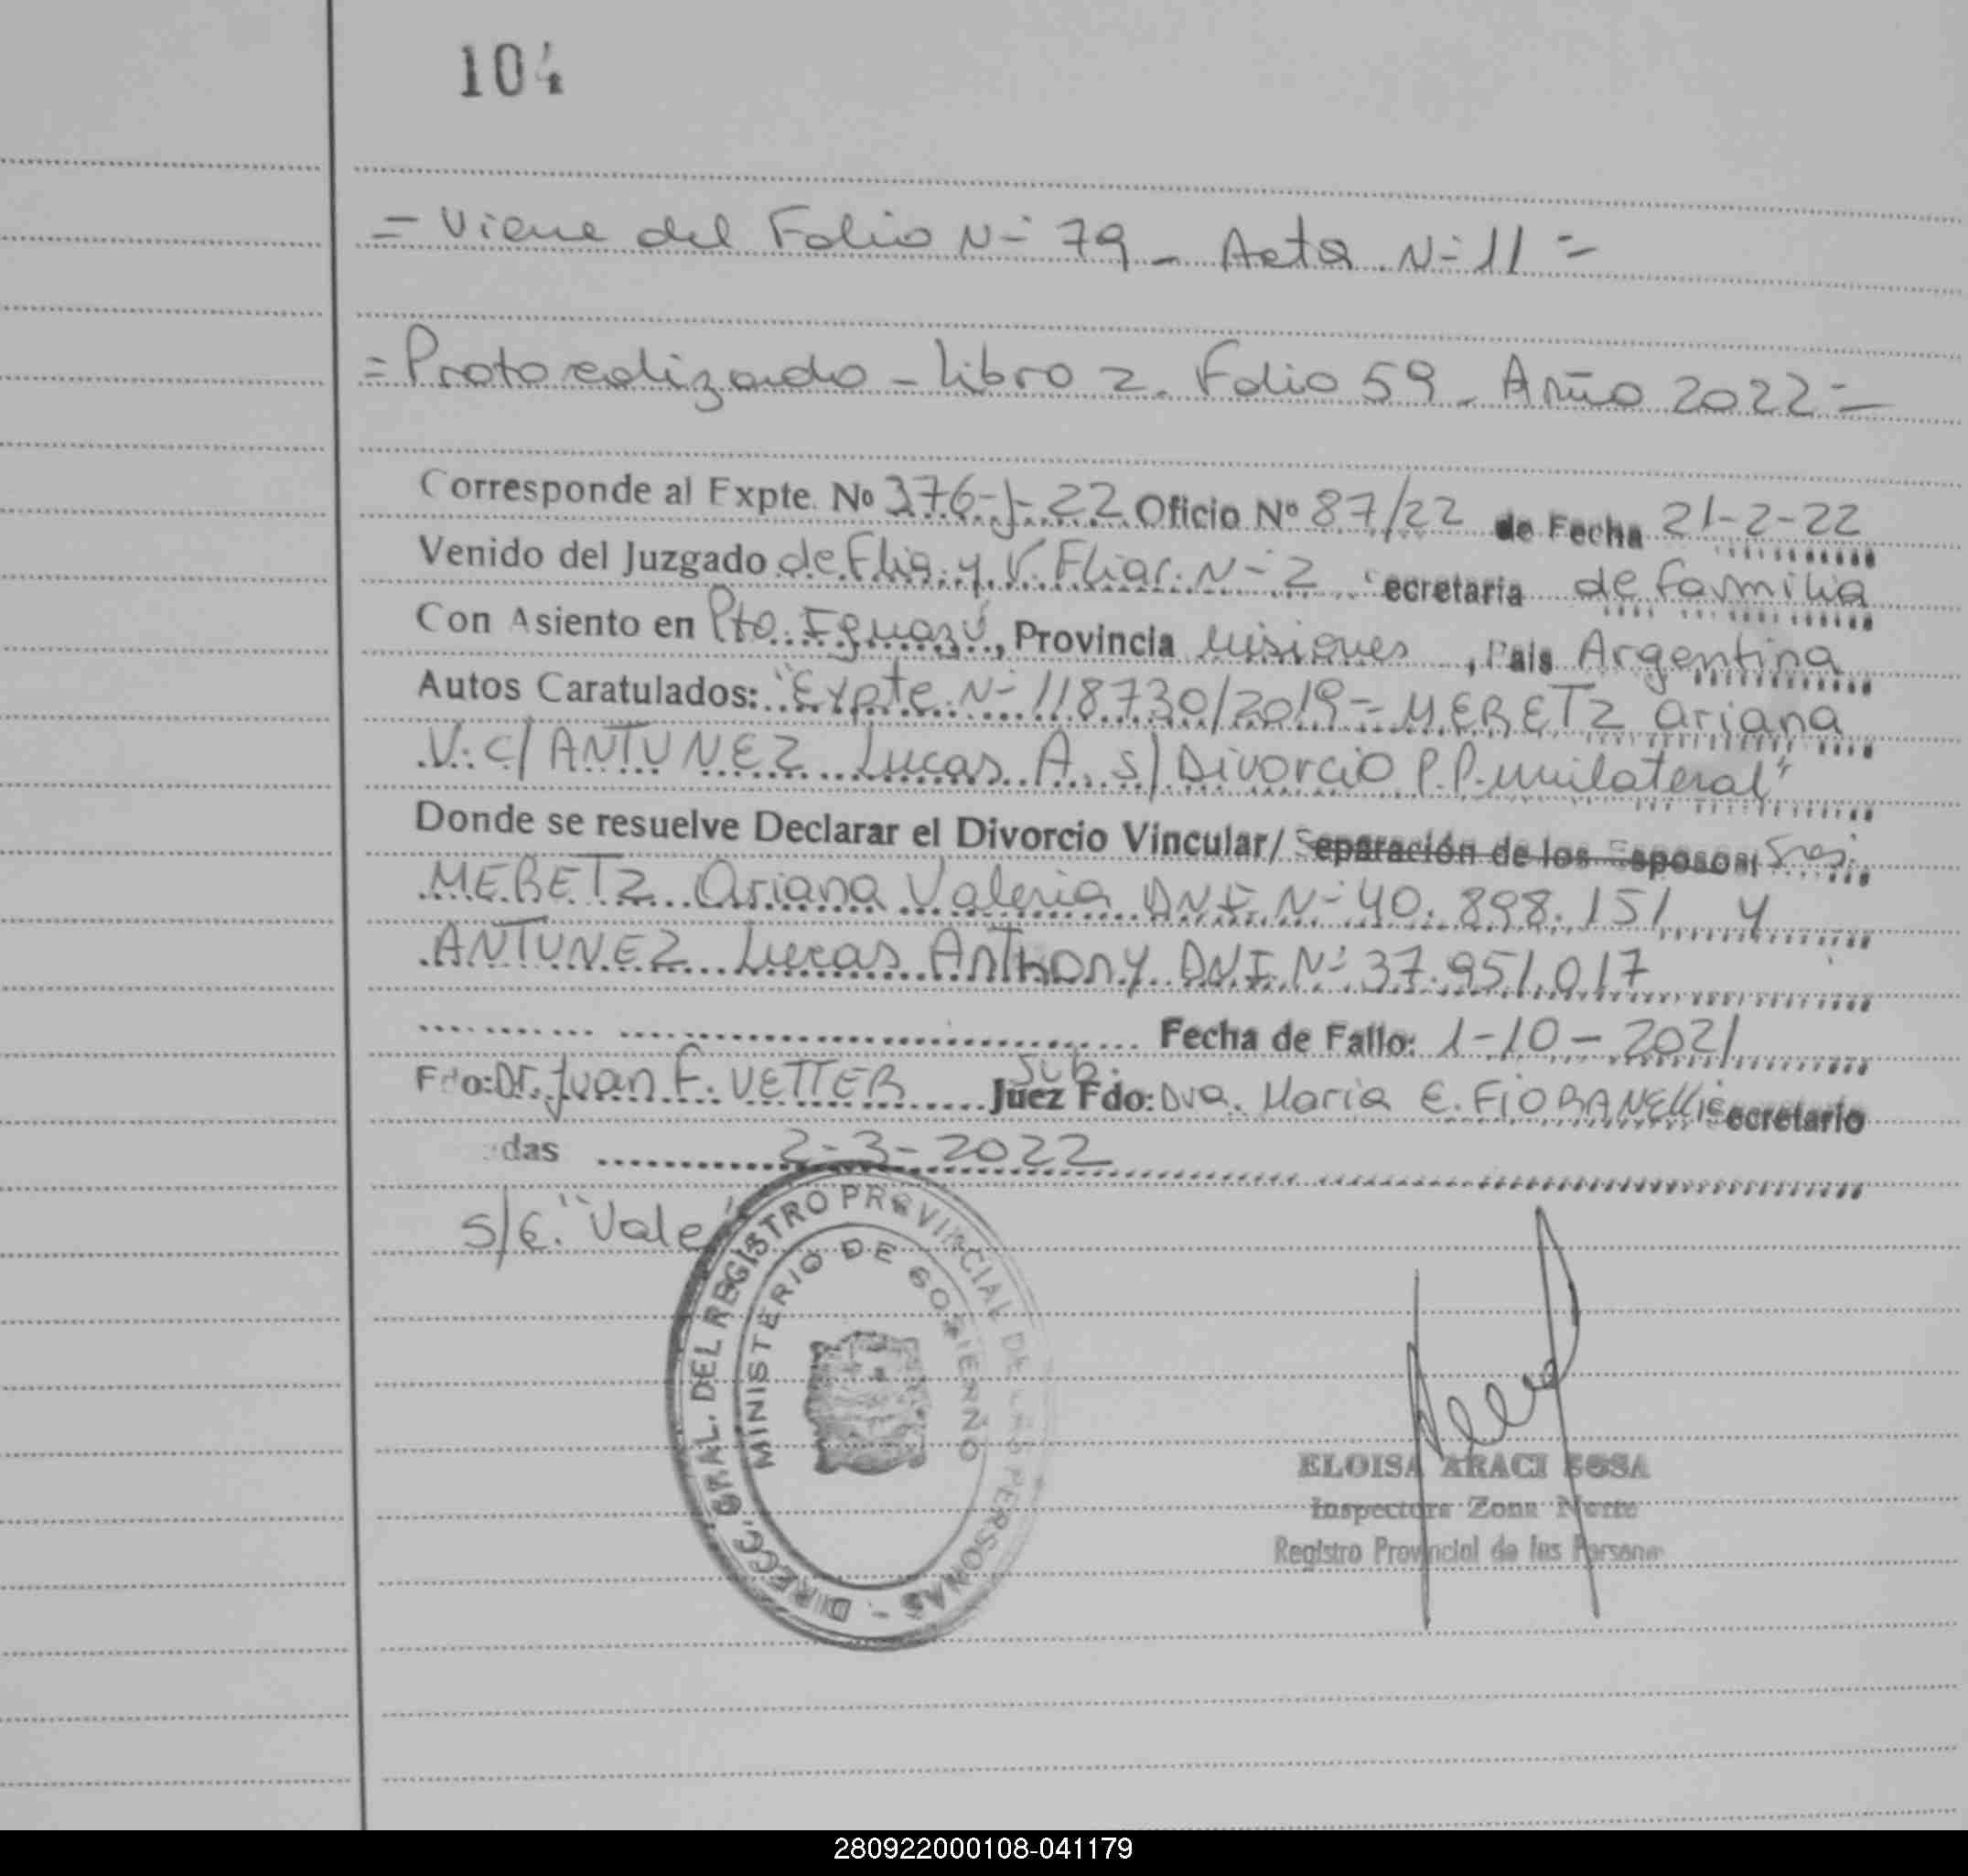 104
= Viene del Folio N- 79 - Acta N- 11 =
= Protocolizado - Libro 2. Folio 59 - Año 2022 =
Corresponde al Expte. Nº 376-J-22 Oficio Nº 87/22 de Fecha 21-2-22
Venido del Juzgado de Flia. y V. Fliar. N- 2 ecretaria de familia
Con Asiento en Pto. Iguazú, Provincia Misiones, Pais Argentina
Autos Caratulados: "Expte. N- 118730/2019 - MERETZ Ariana
V. C/ ANTUNEZ Lucas A. S/ Divorcio P.P. unilateral"
Donde se resuelve Declarar el Divorcio Vincular/ Separación de los Esposos: Sres.
MERETZ Ariana Valeria DNI N- 40.898.151 y
ANTUNEZ Lucas Anthony DNI N- 37.951.017
Fecha de Fallo: 1-10-2021
Fdo: Dr. Juan F. VETTER Juez Fdo: Dra. Maria E. FIORANELLI Secretario
Sub.
das 2-3-2022
S/E. "Vale
DIRECC. GRAL. DEL REGISTRO PROVINCIAL DE LAS PERSONAS -
MINISTERIO DE GOBIERNO
ELOISA ARACI SOSA
Inspectora Zona Norte
Registro Provincial de las Persona
280922000108-041179